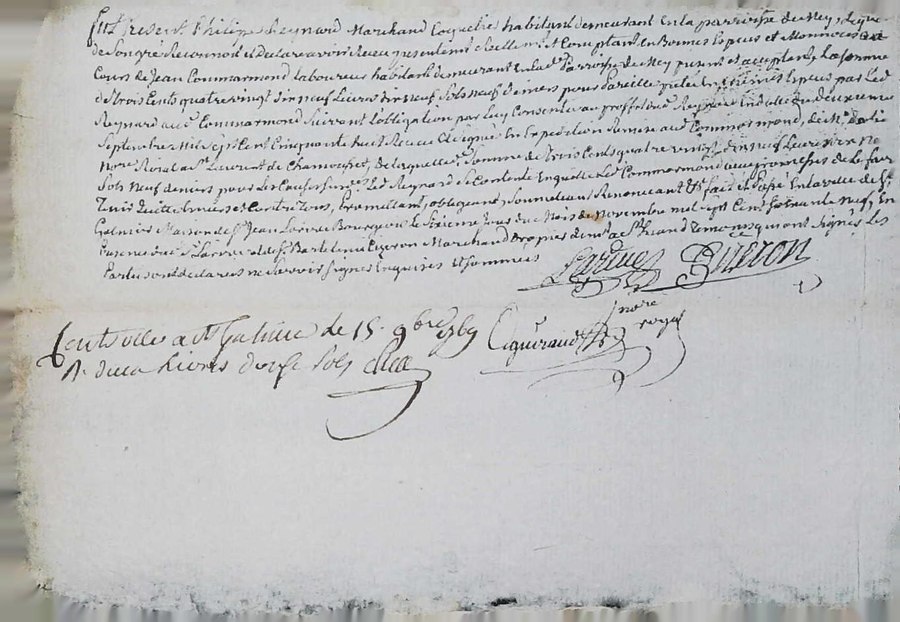 fut present Philippe Reynard Marchand Coquetier habitant demeurant en la parroisse de Nery, lequel
de son gré Reconnoit et Declare avoir Receu presentement Reellement et Comptant en Bonnes Especes et Monnoies
Cours de Jean Commarmond Laboureur habitant demeurant en lad. Parroisse de present et acceptant, La somme
de trois Cents quatre vingt dix neuf Livres dix neuf Sols neuf deniers pour pareille par led
Reynard aud Commarmond suivant l'obligation par luy Consentie au proffit dud Reynard du deuxieme
Septembre mil sept Cent Cinquante huit Receue et signée en Expedition Remise aud Commarmond, de Me
Nore Roial a St Laurent de Chamousset, de laquelle somme de trois Cents quatre vingt dix neuf Livres dix ne
Sols neuf deniers pour les Causes Led Reynard se Contente En quitte led Commarmond avec promesses de le fair
Tenir Quitte Envers et Contre Tous, Promettant obligeant Soumettant Renonceant &c fait et Passé En la ville de St
Galmier Maison de Sr Jean Larive Bourgeois le Sixieme Jour du Mois de Novembre mil sept Cent Soixante Neuf, En
Presence dud Sr Larive et de Sr Barthelemi Gueron Marchand Drapier dem a St Temoins qui ont signés Les
Parties ont declarés ne scavoir signer Enquises et Sommées
Larive Guëron
nore
royal
Contrôlé a St Galmier le 15 9bre 1769
R. deux Livres douze sols